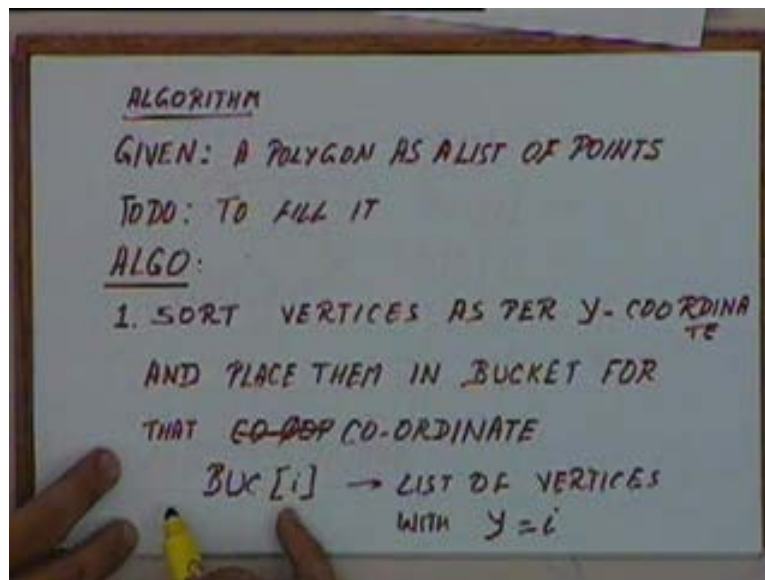 ALGORITHM
GIVEN: A POLYGON AS A LIST OF POINTS
TODO: TO FILL IT
ALGO:
1. SORT VERTICES AS PER Y-COORDINA
TE
AND PLACE THEM IN BUCKET FOR
THAT CO-ORDINATE
BUC[i] → LIST OF VERTICES
WITH Y=i